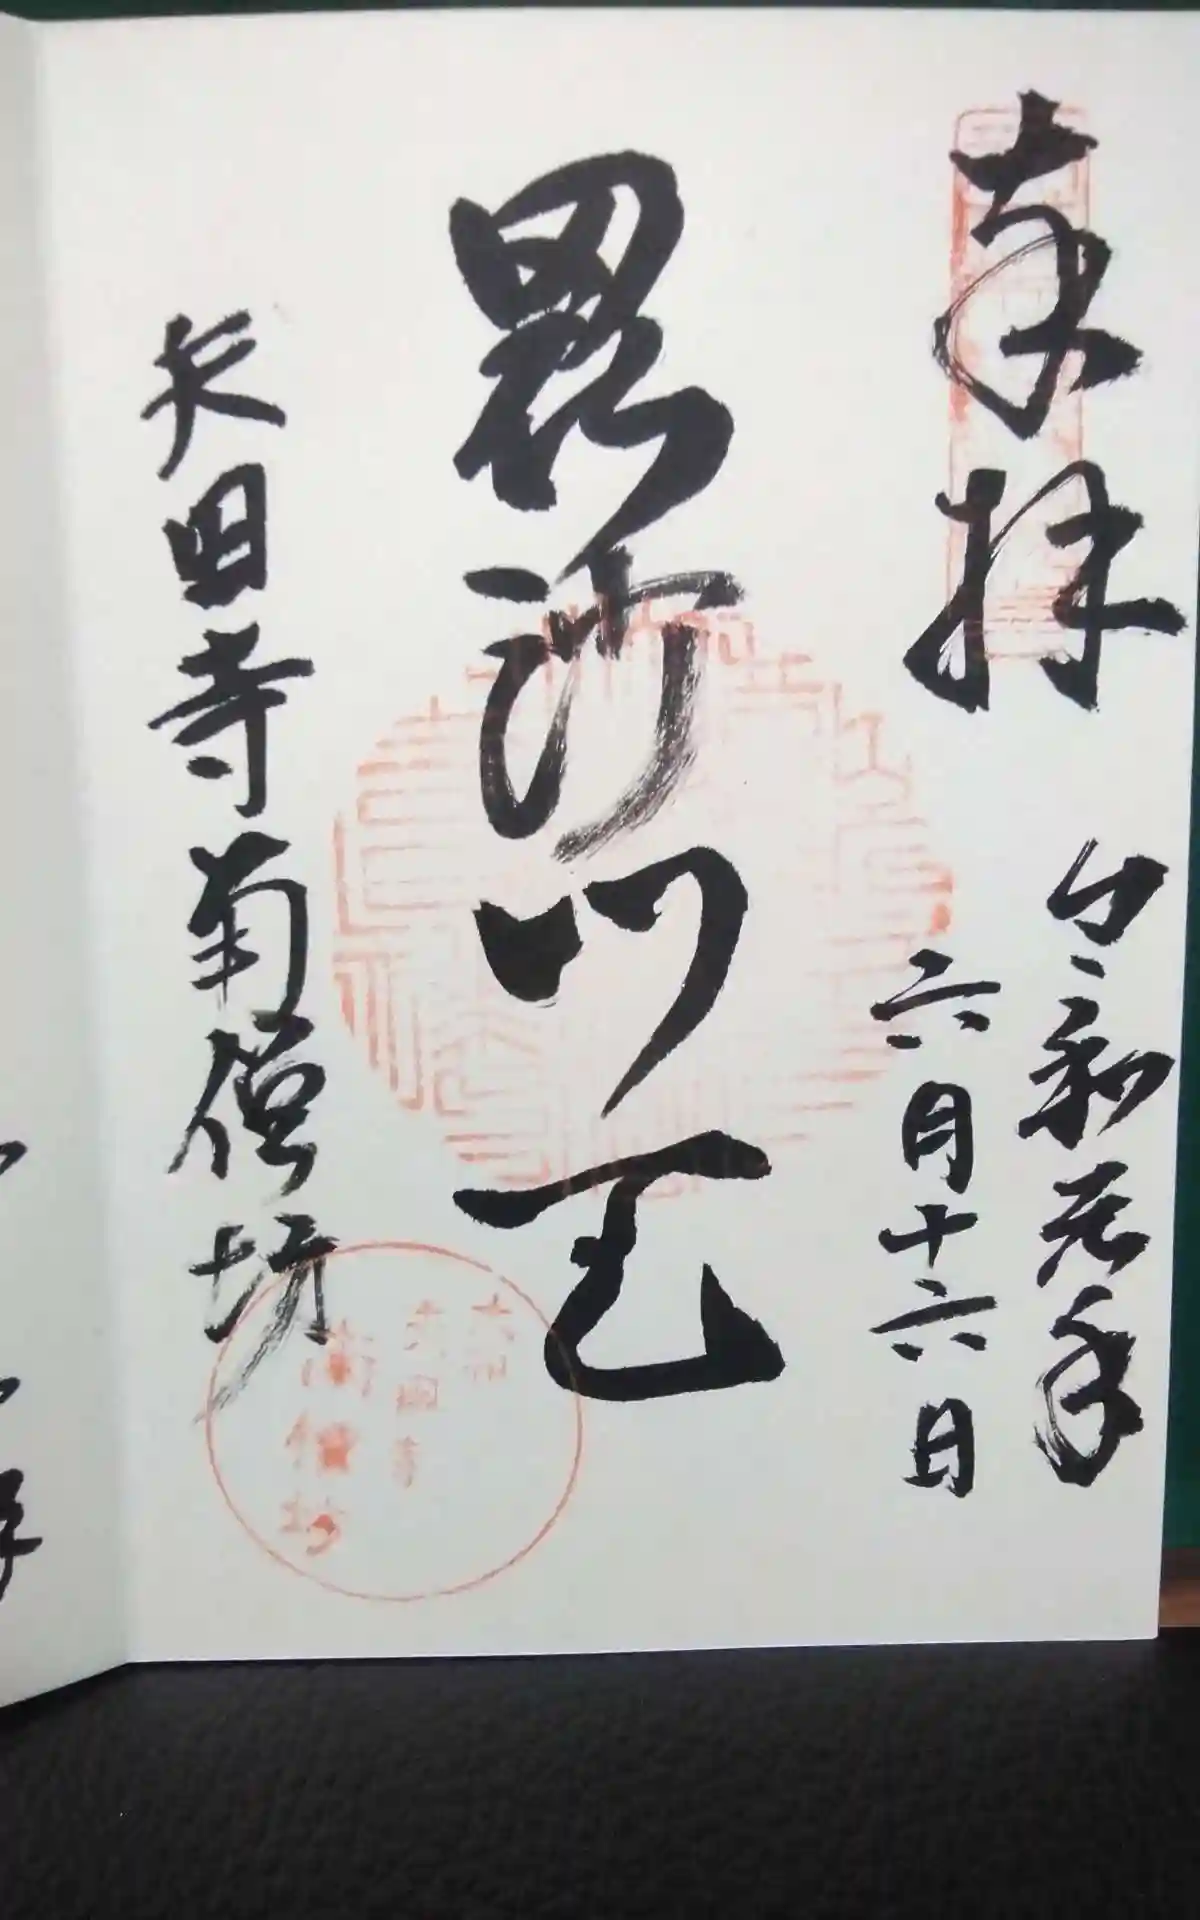 奉拝
令和元年
六月十六日
毘沙門天
矢田寺南僧坊
大和
矢田寺
南僧坊